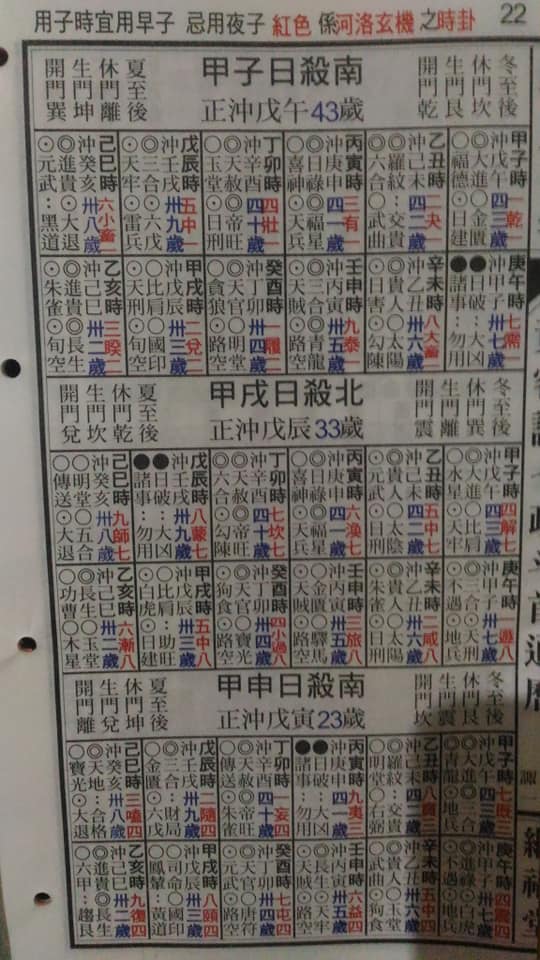 用子時宜用早子 忌用夜子 紅色 係河洛玄機之時卦 22
冬至後
休門坎
生門艮
開門乾
甲子日殺南
正沖戊午43歲
夏至後
休門離
生門坤
開門巽
甲子時 四乾一
沖戊午 四三歲
◎大進 ○金匱
○福德 ⊙日建
乙丑時 二夬一
沖己未 四二歲
◎羅紋 交貴
◎六合 ○武曲
丙寅時 三有一
沖庚申 四一歲
◎日祿 ◎天福
○喜神 ⊙天兵
丁卯時 四壯一
沖辛酉 四十歲
◎天赦 ◎帝旺
○玉堂 ⊙日刑
戊辰時 五中一
沖壬戌 卅九歲
◎三合 ⊙六戊
⊙天牢 ⊙雷兵
己巳時 六小畜一
沖癸亥 卅八歲
◎進貴 ⊙大退
⊙元武:黑道
庚午時 七需一
沖甲子 卅七歲
●日破:大凶
●諸事:勿用
辛未時 八大畜一
沖乙丑 卅六歲
◎貴人 ○太陽
⊙日害 ⊙勾陳
壬申時 九泰一
沖丙寅 卅五歲
◎三合 ○青龍
⊙天賊 ⊙路空
癸酉時 一履二
沖丁卯 卅四歲
◎天官 ○明堂
○貪狼 ⊙路空
甲戌時 二兌二
沖戊辰 卅三歲
○比肩 ○國印
⊙天刑 ⊙旬空
乙亥時 三睽二
沖己巳 卅二歲
◎進貴 ◎長生
⊙朱雀 ⊙旬空
冬至後
休門巽
生門離
開門震
甲戌日殺北
正沖戊辰33歲
夏至後
休門乾
生門坎
開門兌
甲子時 四解七
沖戊午 四三歲
◎大進 ○比肩
○水星 ⊙天牢
乙丑時 五中七
沖己未 四二歲
◎貴人 ○太陰
⊙元武 ⊙日刑
丙寅時 六渙七
沖庚申 四一歲
◎日祿 ◎天福
○喜神 ⊙天兵
丁卯時 七坎七
沖辛酉 四十歲
◎天赦 ◎帝旺
◎六合 ⊙勾陳
戊辰時 八蒙七
沖壬戌 卅九歲
●日破:大凶
●諸事:勿用
己巳時 九師七
沖癸亥 卅八歲
○明堂 ○五合
○傳送 ⊙大退
庚午時 一遯八
沖甲子 卅七歲
◎三合 ⊙天刑
⊙不遇 ⊙地兵
辛未時 二咸八
沖乙丑 卅六歲
◎貴人 ○太陽
⊙朱雀 ⊙日刑
壬申時 三旅八
沖丙寅 卅五歲
○金匱 ○驛馬
⊙天賊 ⊙路空
癸酉時 四小過八
沖丁卯 卅四歲
◎天官 ○寶光
⊙狗食 ⊙路空
甲戌時 五中八
沖戊辰 卅三歲
○比肩:助旺
⊙白虎 ⊙日建
乙亥時 六漸八
沖己巳 卅二歲
◎長生 ○玉堂
○功曹 ○木星
冬至後
休門艮
生門震
開門坎
甲申日殺南
正沖戊寅23歲
夏至後
休門坤
生門兌
開門離
甲子時 七既三
沖戊午 四三歲
◎大進 ◎三合
○青龍 ⊙地兵
乙丑時 八賁三
沖己未 四二歲
◎羅紋:交貴
○明堂 ○右弼
丙寅時 九夷三
沖庚申 四一歲
●日破:大凶
●諸事:勿用
丁卯時 一妄四
沖辛酉 四十歲
◎天赦 ◎帝旺
○傳送 ⊙朱雀
戊辰時 二隨四
沖壬戌 卅九歲
◎三合:財局
○金匱 ⊙六戊
己巳時 三嗑四
沖癸亥 卅八歲
◎天地:合格
○寶光 ⊙大退
庚午時 四震四
沖甲子 卅七歲
◎進祿 ⊙白虎
⊙不遇 ⊙地兵
辛未時 五中四
沖乙丑 卅六歲
◎貴人 ○玉堂
○武曲 ⊙狗食
壬申時 六益四
沖丙寅 卅五歲
○長生 ⊙天牢
⊙天賊 ⊙路空
癸酉時 七屯四
沖丁卯 卅四歲
◎天官 ○唐符
⊙元武 ⊙路空
甲戌時 八頤四
沖戊辰 卅三歲
○司命 ○國印
○鳳輦:黃道
乙亥時 九復四
沖己巳 卅二歲
◎進貴 ◎長生
○六甲:趨艮